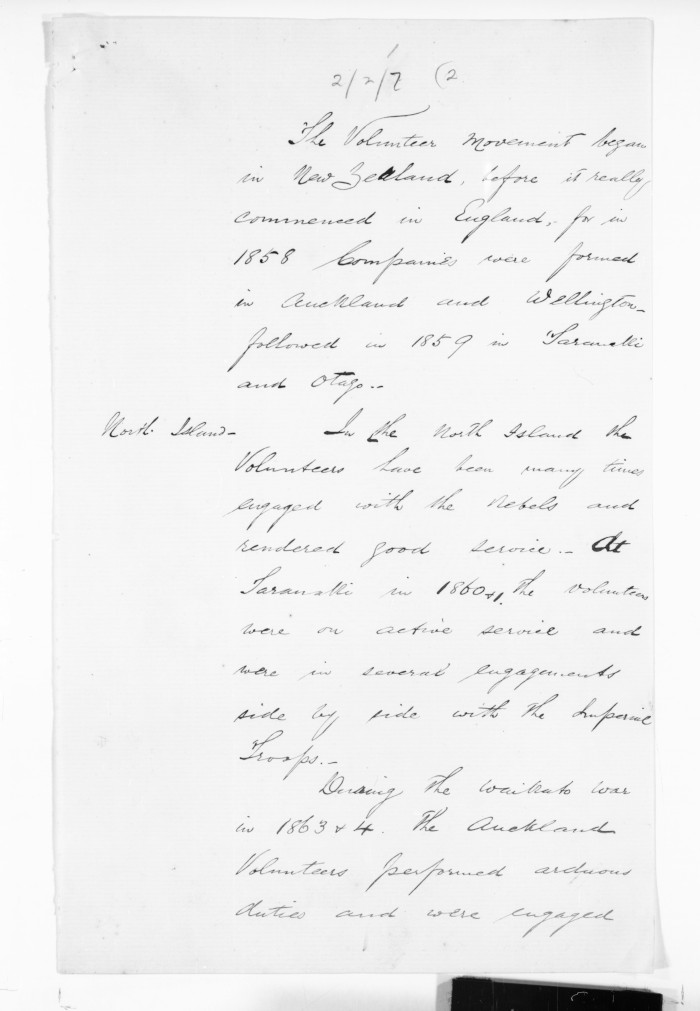 2/2/7 (2
The Volunteer Movement began
in New Zealand, before it really
commenced in England, for in
1858 Companies were formed
in Auckland and Wellington -
followed in 1859 in Taranaki
and Otago. -
North Island -
In the North Island the
Volunteers have been many times
engaged with the Rebels and
rendered good service. - At
Taranaki in 1860 & 1. The Volunteers
were on active service and
were in several engagements
side by side with the Imperial
Troops. -
During the Waikato War
in 1863 & 4. The Auckland
Volunteers performed arduous
duties and were engaged